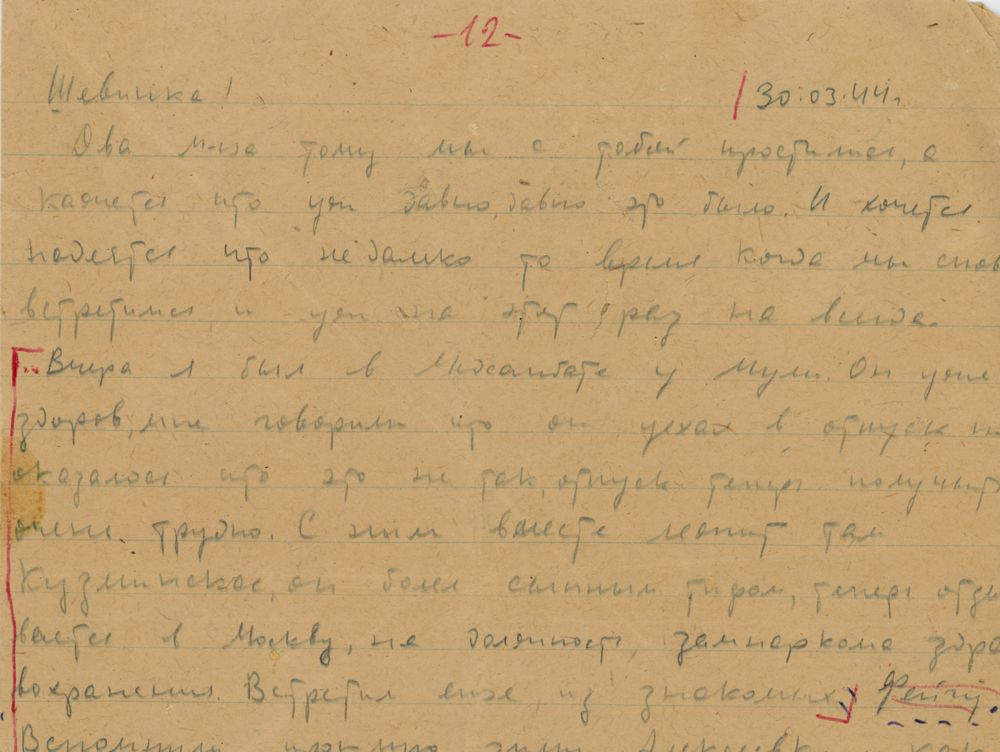 -12-
Шевичка! 30.03.44г.
Два м-ца тому мы с тобой простились, а
кажется что уже давно, давно это было. И хочется
надеятся что недалеко то время когда мы снов
встретимся и уже на этот раз на всегда.
Вчера я был в Медсанбате у Мули. Он уже
здоров, мне говорили что он уехал в отпуск н
оказалось что это не так, отпуск теперь получить
очень трудно. С ним вместе лежит там
Кузминской, он болел сыпным тифом, теперь отзы
вается в Москву, на должность, замнаркома здра
вохранения. Встретил еще из знакомых
Вспомнили зиму Алексеевк